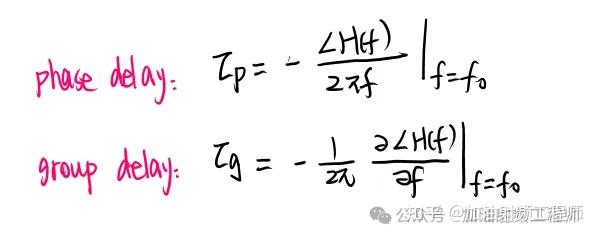 phase delay: τp = - ∠H(f) / 2πf |f=f0
group delay: τg = - 1/2π ∂∠H(f)/∂f |f=f0
公众号 · 加油射频工程师